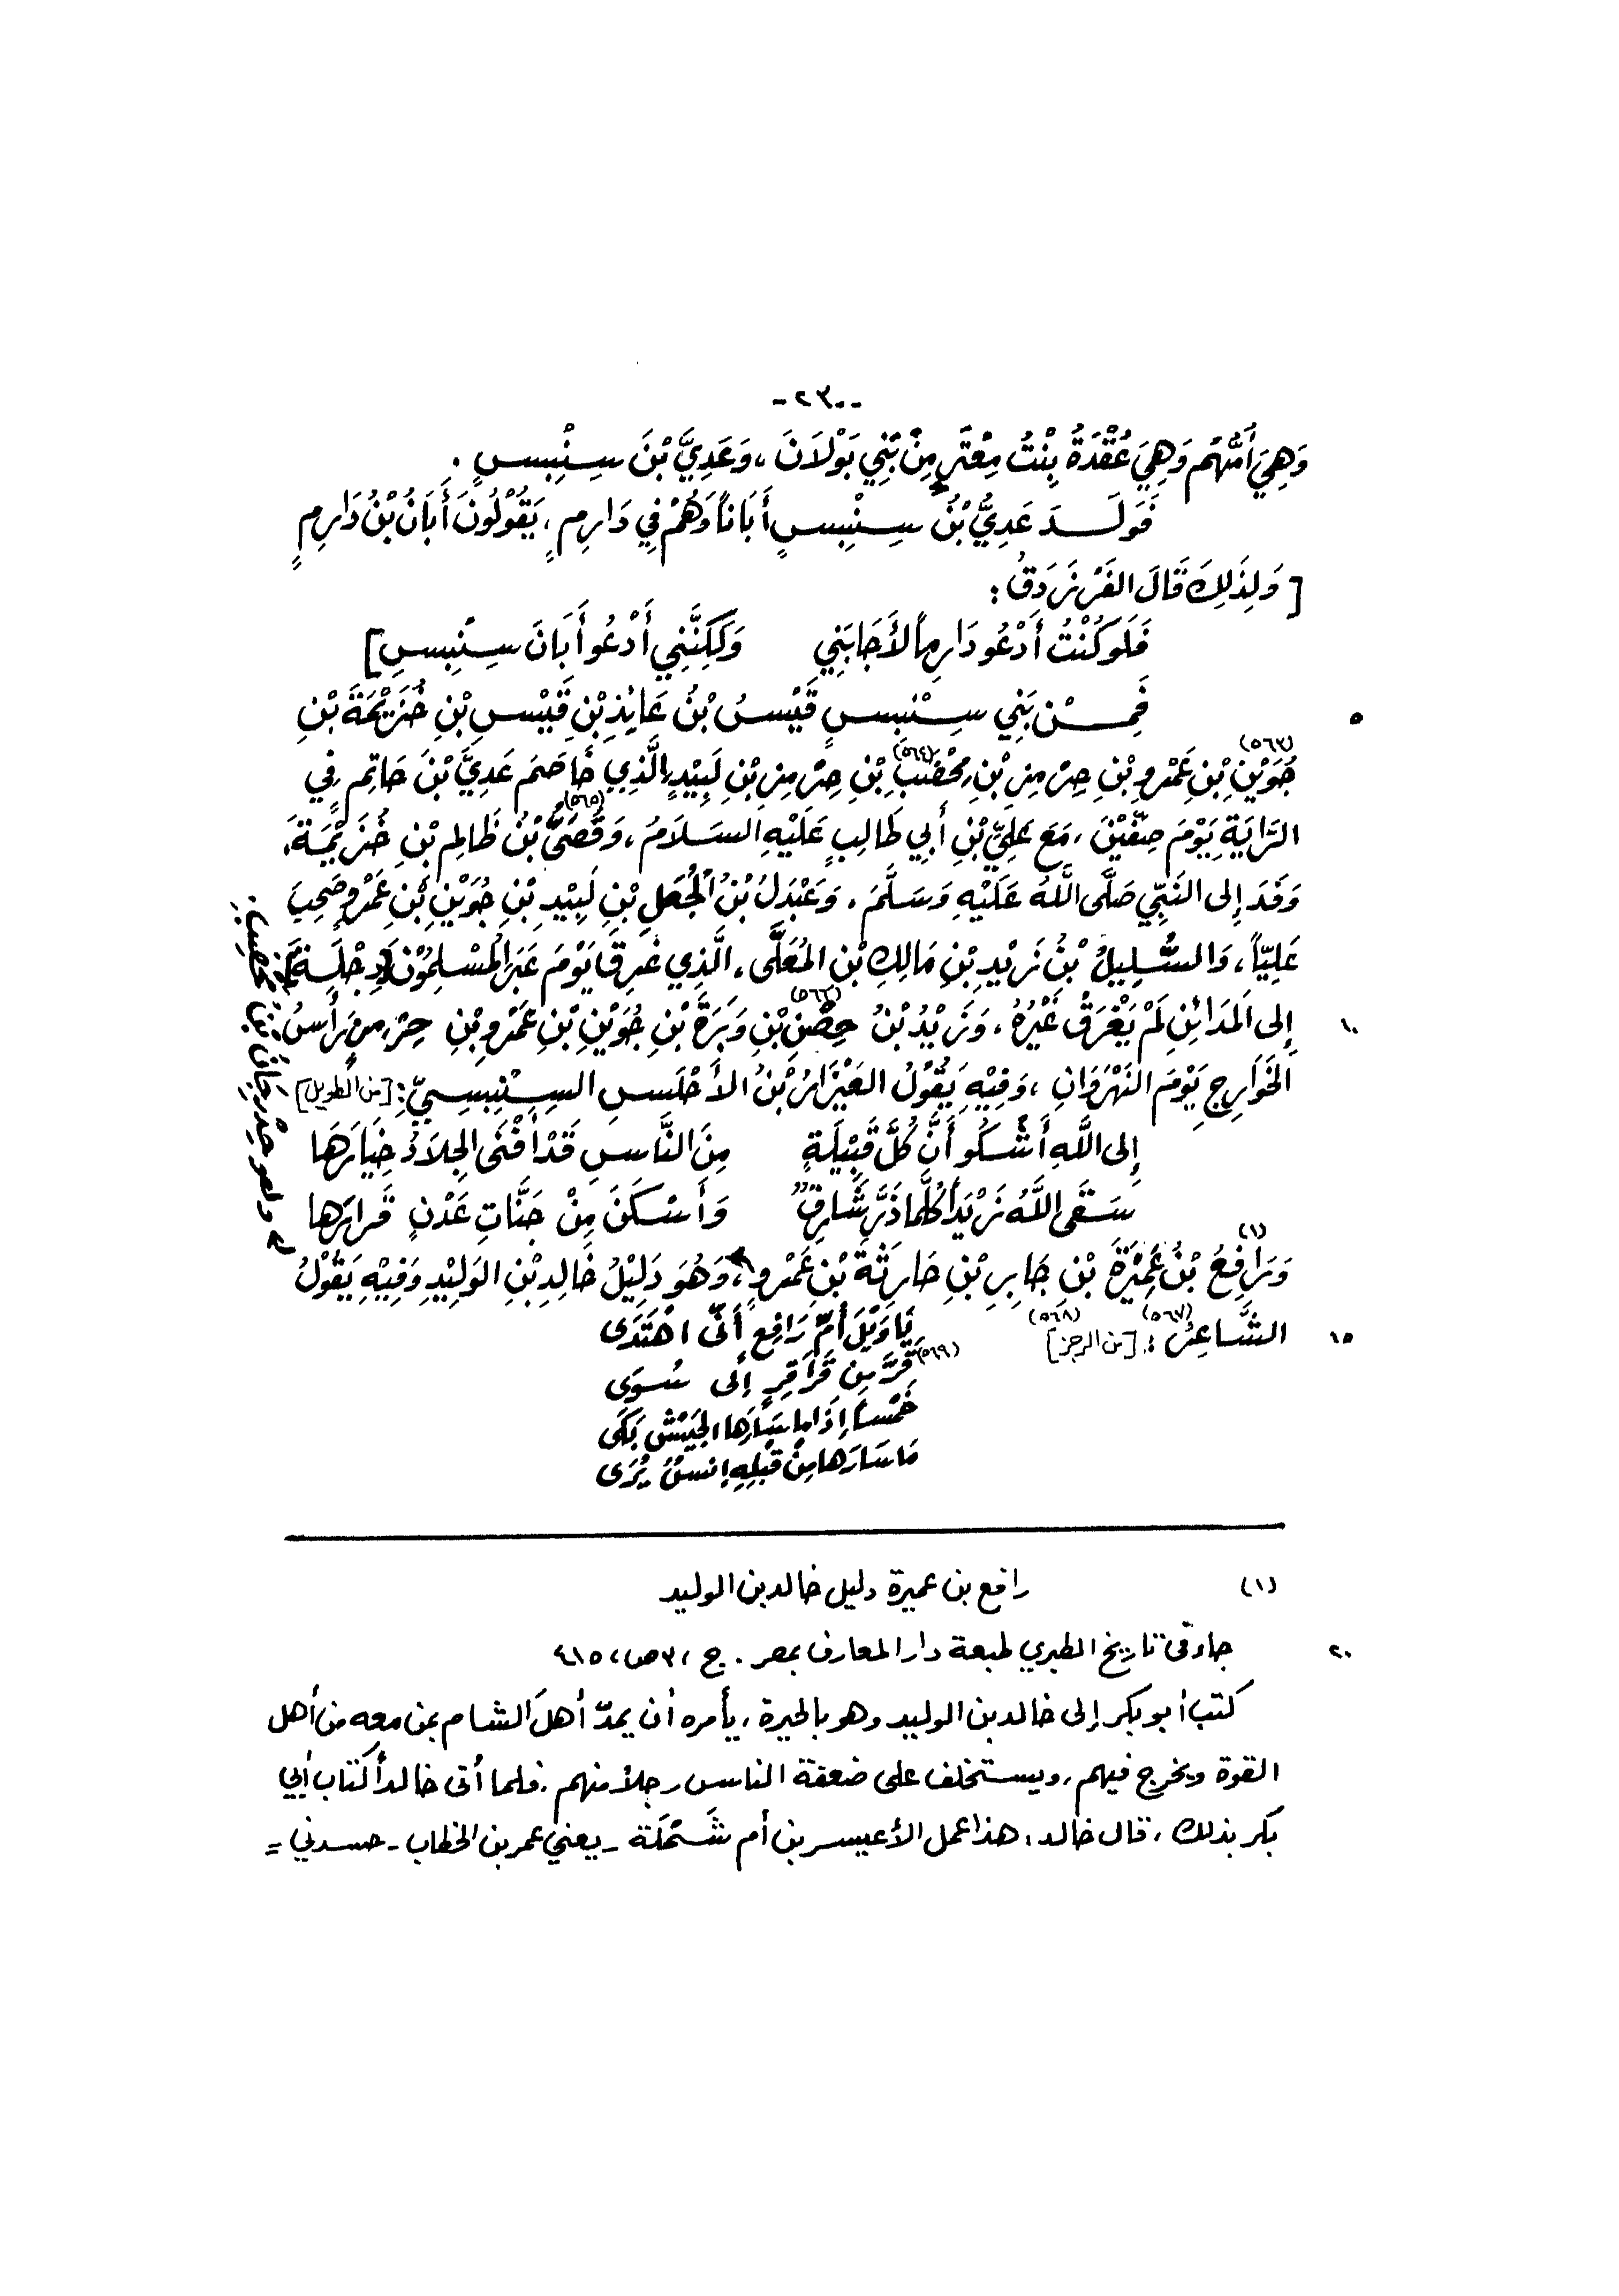 -٢٣٠-
وَهِيَ أُمُّهُم وَهِيَ عُقْدَةُ بِنْتُ مِعْتَرِ مِنْ بَنِي بَوْلَانَ، وَعَدِيَّ بْنَ سِنْبِسٍ .
فَوَلَدَ عَدِيُّ بْنُ سِنْبِسٍ أَبَاناً وَهُمْ فِي دَارِمٍ، يَقُوْلُونَ أَبَانُ بْنُ دَارِمٍ
[وَلِذَلِكَ قَالَ الفَرَزدَقُ:
فَلَوكُنْتُ أَدْعُو دَارِماً لأَجَابَنِي وَلَكِنَّنِي أَدْعُو أَبَانَ سِنْبِسِ]
٥ فَمِنْ بَنِي سِنْبِسٍ قَيْسُ بْنُ عَائِذِ بْنِ قَيْسِ بْنِ خُزَيْمَةَ بْنِ
جُوَيْنِ (٥٦٣) بْنِ عَمْرِو بْنِ حِرْمِزِ بْنِ مِحْضَبِ (٥٦٤) بْنِ حِرْمِزِ بْنِ لَبِيْدٍ، الَّذِي خَاصَمَ عَدِيَّ بْنَ حَاتِمٍ فِي
الرَّايَةِ يَوْمَ صِفِّيْنَ، مَعَ عَلِيِّ بْنِ أَبِي طَالِبٍ عَلَيْهِ السَلَامُ، وَقُصَيُّ (٥٦٥) بْنُ ظَالِمِ بْنِ خُزَيْمَةَ،
وَفَدَ إِلى النَبِّيِ صَلَّى اللَّهُ عَلَيْهِ وَسَلَّمَ، وَعَبْدَلُ بْنُ الْجُعَلِ بْنِ لَبِيْدِ بْنِ جُوَيْنِ بْنِ عَمْرٍو صَحِبَ
عَلِيّاً، وَالسَّلِيلُ بْنُ زَيْدِ بْنِ مَالِكِ بْنِ المُعَلَّى، الَّذِي غَرِقَ يَوْمَ عَبَرَ الْمُسْلِمُوْنَ دِجْلَةَ
١٠ إِلى الْمَدَائِنِ لَمْ يَغْرَقْ غَيْرُهُ، وَزَيْدُ بْنُ حِصْنِ (٥٦٦) بْنِ وَبَرَةَ بْنِ جُوَيْنِ بْنِ عَمْرِو بْنِ حِرْمِزٍ رَأْسُ
الخَوَارِجِ يَوْمَ النَهْرَوَانِ، وَفِيْهِ يَقُوْلُ العَيْزَارُ بْنُ الأَخْلَسِ السِنْبِسِيِّ: [من الطويل]
إِلى اللَّهِ أَشْكُو أَنَّ كُلَّ قَبِيْلَةٍ مِنَ النَّاسِ قَدْ أَفْنَى الجِلَادُ خِيَارَهَا
سَقَى اللَّهُ زَيْداً كُلَّمَا ذَرَّ شَارِقٌ وَأَسْكَنَ مِنْ جَنَّاتِ عَدْنٍ قَرارَها
وَرَافِعُ (١) بْنُ عَمِيْرَةَ بْنِ جَابِرِ بْنِ حَارِثَةَ بْنِ عَمْرٍو، وَهُوَ دَلِيْلُ خَالِدِ بْنِ الوَلِيْدِ وَفِيْهِ يَقُوْلُ
١٥ الشَّاعِرُ (٥٦٧): [من الرجز] (٥٦٨) يَا وَيْلَ أُمِّ رَافِعٍ أَنَّى اهْتَدَى
(٥٦٩) قَرَّ مِن قَرَاقِرٍ إِلى سُوَى
خَمْساً إِذَا ما سَارَها الجَيْشُ بَكَى
مَا سَارَها مِنْ قَبْلِهِ إِنسٌ يُرَى
(١) رافع بن عميرة دليل خالد بن الوليد
٢٠ جاء في تاريخ الطبري طبعة دار المعارف بمصر . ج ،٣ ص، ٤١٥
كتب أبو بكر إلى خالد بن الوليد وهو بالحيرة، يأمره أن يمدّ أهل الشام بمن معه من أهل
القوة ويخرج فيهم، ويستخلف على ضعفة الناس رجلاً منهم، فلما أتى خالداً كتاب أبي
بكر بذلك، قال خالد: هذا عمل الأعيسر بن أم شَمْلَة - يعني عمر بن الخطاب - حسدني =